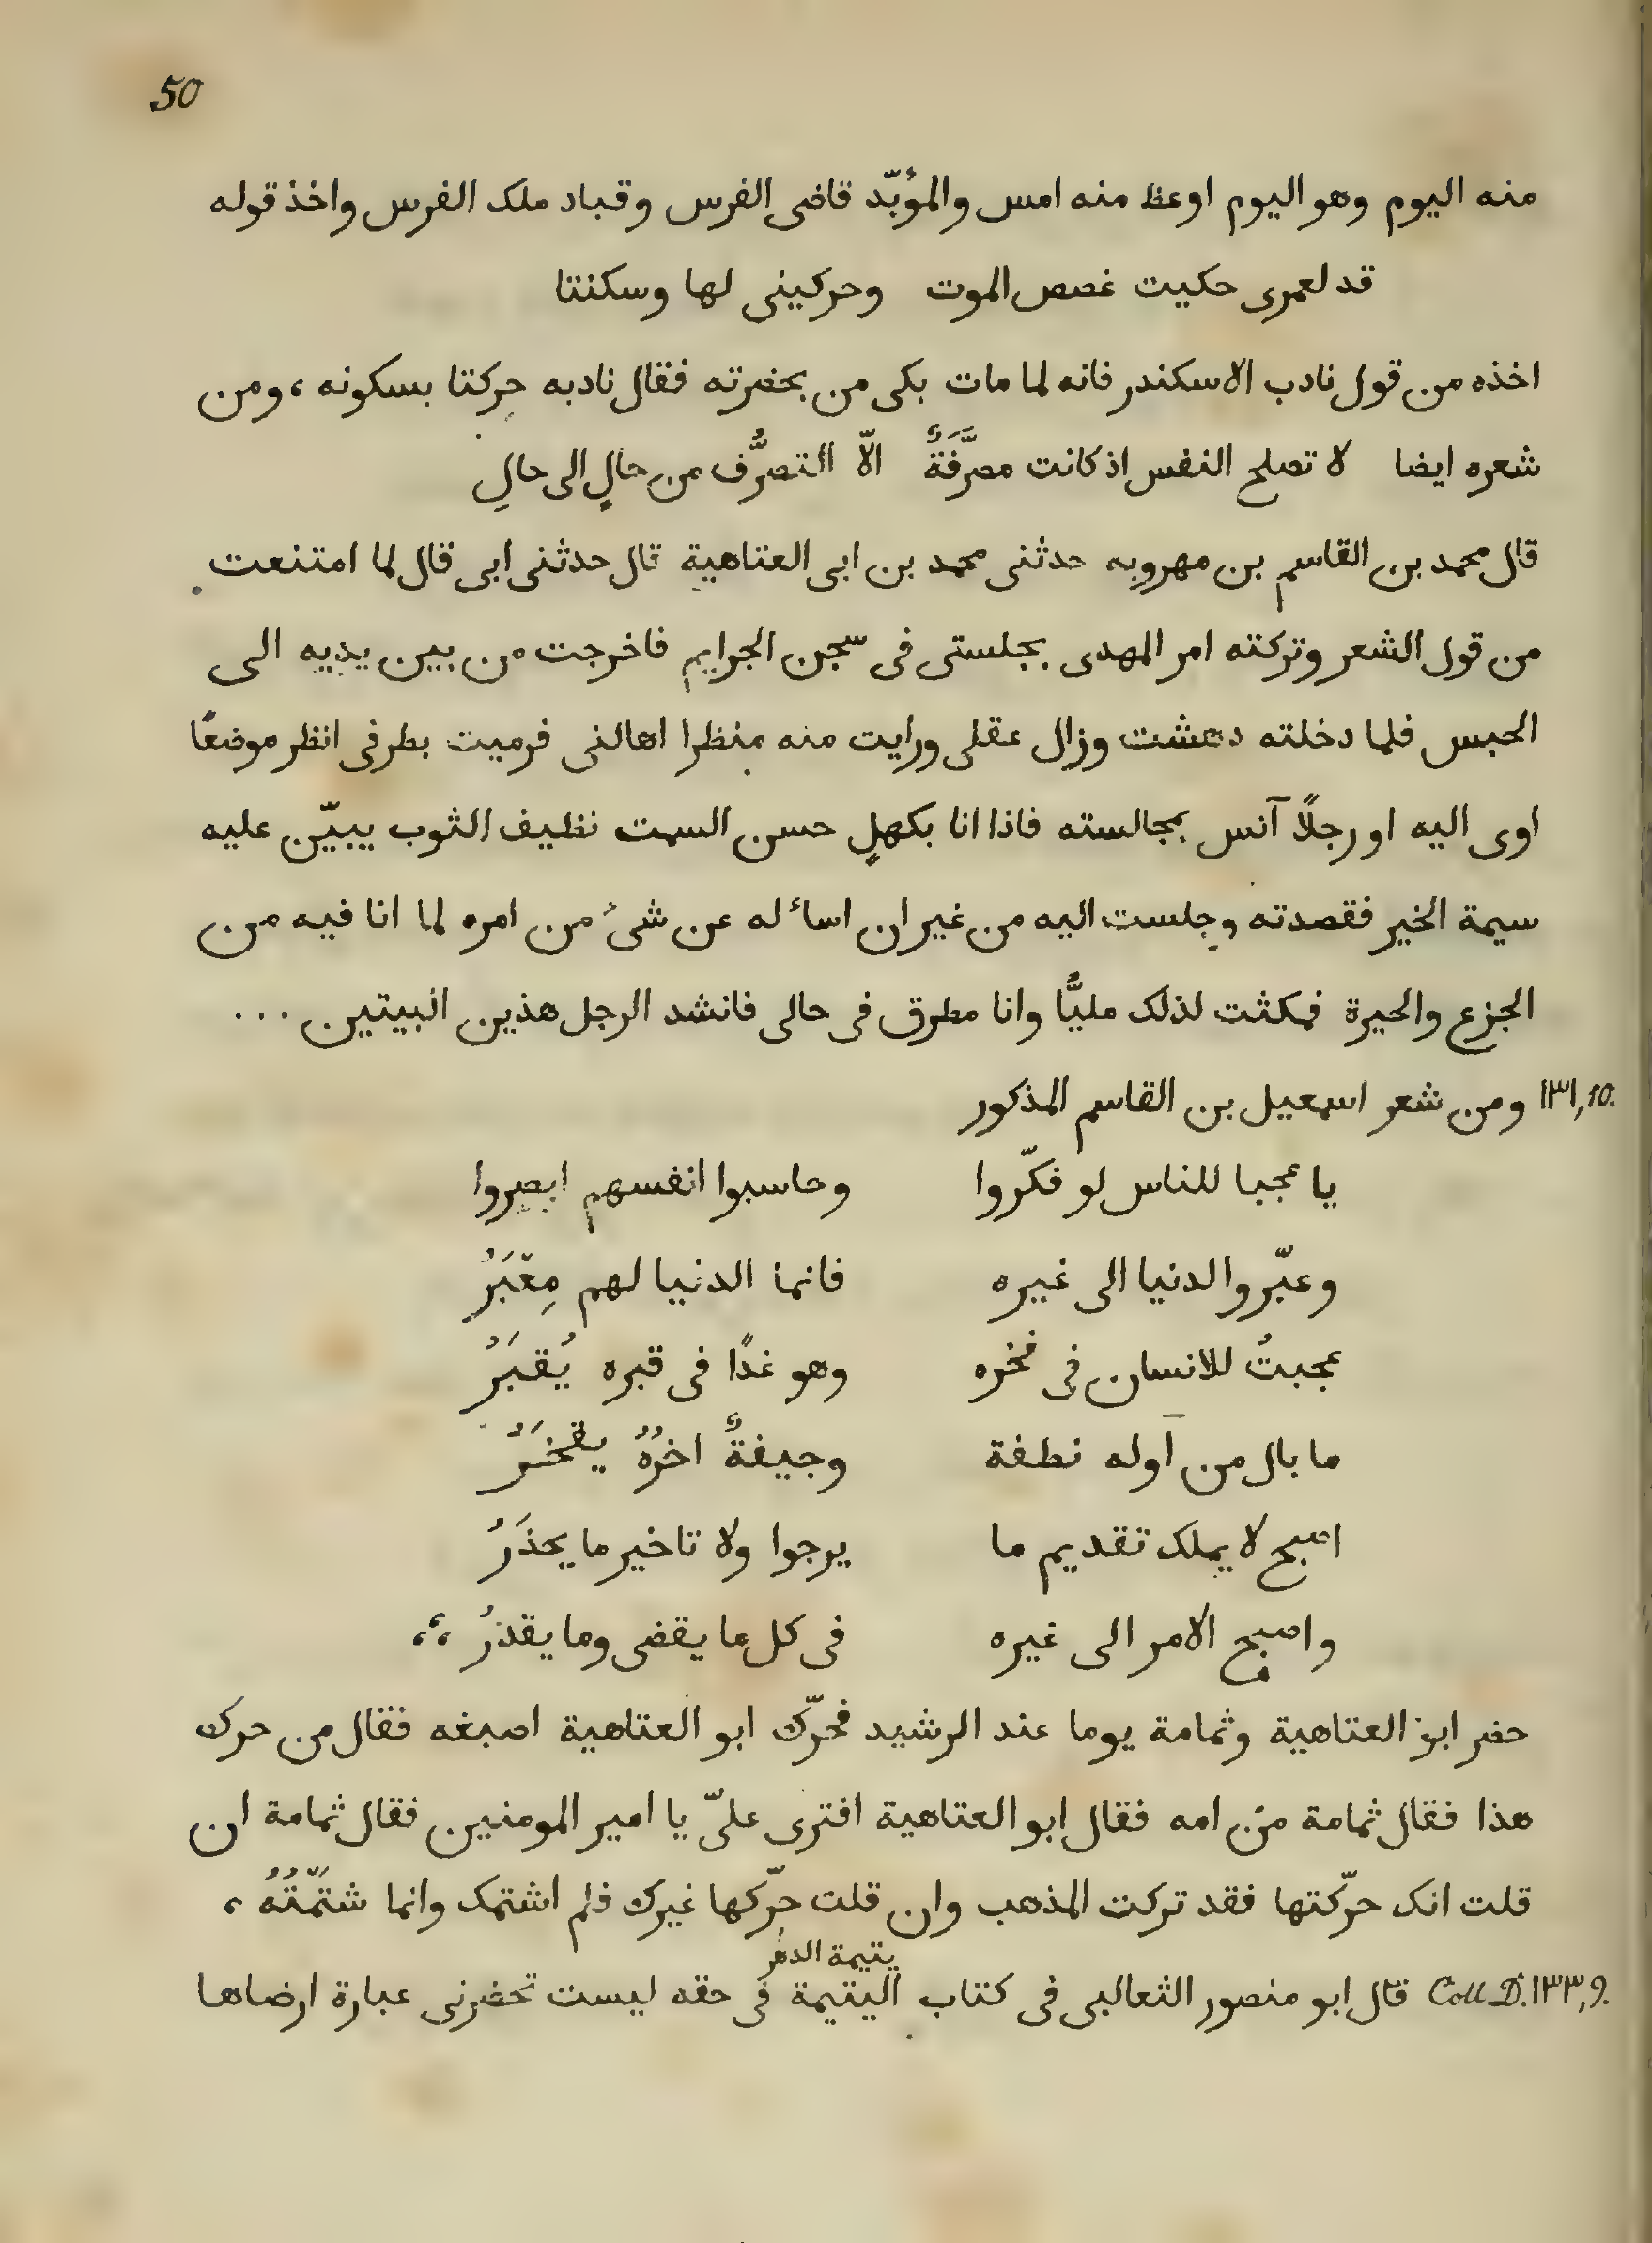 50
منه اليوم وهو اليوم اوعظ منه امس والمؤبّد قاضى الفرس وقباد ملك الفرس واخذ قوله
قد لعمرى حكيت غصص الموت وحركينى لها وسكنتا
اخذه من قول نادب الاسكندر فانه لما مات بكى من بحضرته فقال نادبه حركتا بسكونه ، ومن
شعره ايضا لا تصلح النفس اذ كانت مصرَّفَةً الّا التصرُّف من حالٍ الى حالِ
قال محمد بن القاسم بن مهرويه حدثنى محمد بن ابى العتاهية قال حدثنى ابى قال لما امتنعت
من قول الشعر وتركته امر المهدى بجلستى فى سجن الجرايم فاخرجت من بين يديه الى
الحبس فلما دخلته دهشت وزال عقلى ورايت منه منظرا اهالنى فرميت بطرفى انظر موضعًا
اوى اليه او رجلًا آنس بمجالسته فاذا انا بكهلٍ حسن السمت نظيف الثوب يبيّن عليه
سيمة الخير فقصدته وجلست اليه من غير ان اساءله عن شىء من امره لما انا فيه من
الجزع والحيرة فمكثت لذلك مليًّا وانا مطرق فى حالى فانشد الرجل هذين البيتين ...
١٣١,10. ومن شعر اسمعيل بن القاسم المذكور
يا عجبا للناس لو فكّروا وحاسبوا انفسهم ابصروا
وعبّروا الدنيا الى غيره فانما الدنيا لهم مِعْبَرُ
عجبتُ للانسان فى فخره وهو غدًا فى قبره يُقبَرُ
ما بال من آوله نطفة وجيفةٌ اخرُهُ يفخَرُ
اصبح لا يملك تقديم ما يرجوا ولا تاخير ما يحذَرُ
واصبح الامر الى غيره فى كل ما يقضى وما يقدرُ ،،
حضر ابو العتاهية وثمامة يوما عند الرشيد فحرّك ابو العتاهية اصبغه فقال من حرك
هذا فقال ثمامة من امه فقال ابو العتاهية افترى علىّ يا امير المومنين فقال ثمامة ان
قلت انك حرّكتها فقد تركت المذهب وان قلت حرّكها غيرك فلم اشتمك وانما شتمّتُهُ ،
يتيمة الدهر
Coll D. ١٣٣,9. قال ابو منصور الثعالبى فى كتاب اليتيمة فى حقه ليست تحضرنى عبارة ارضاها